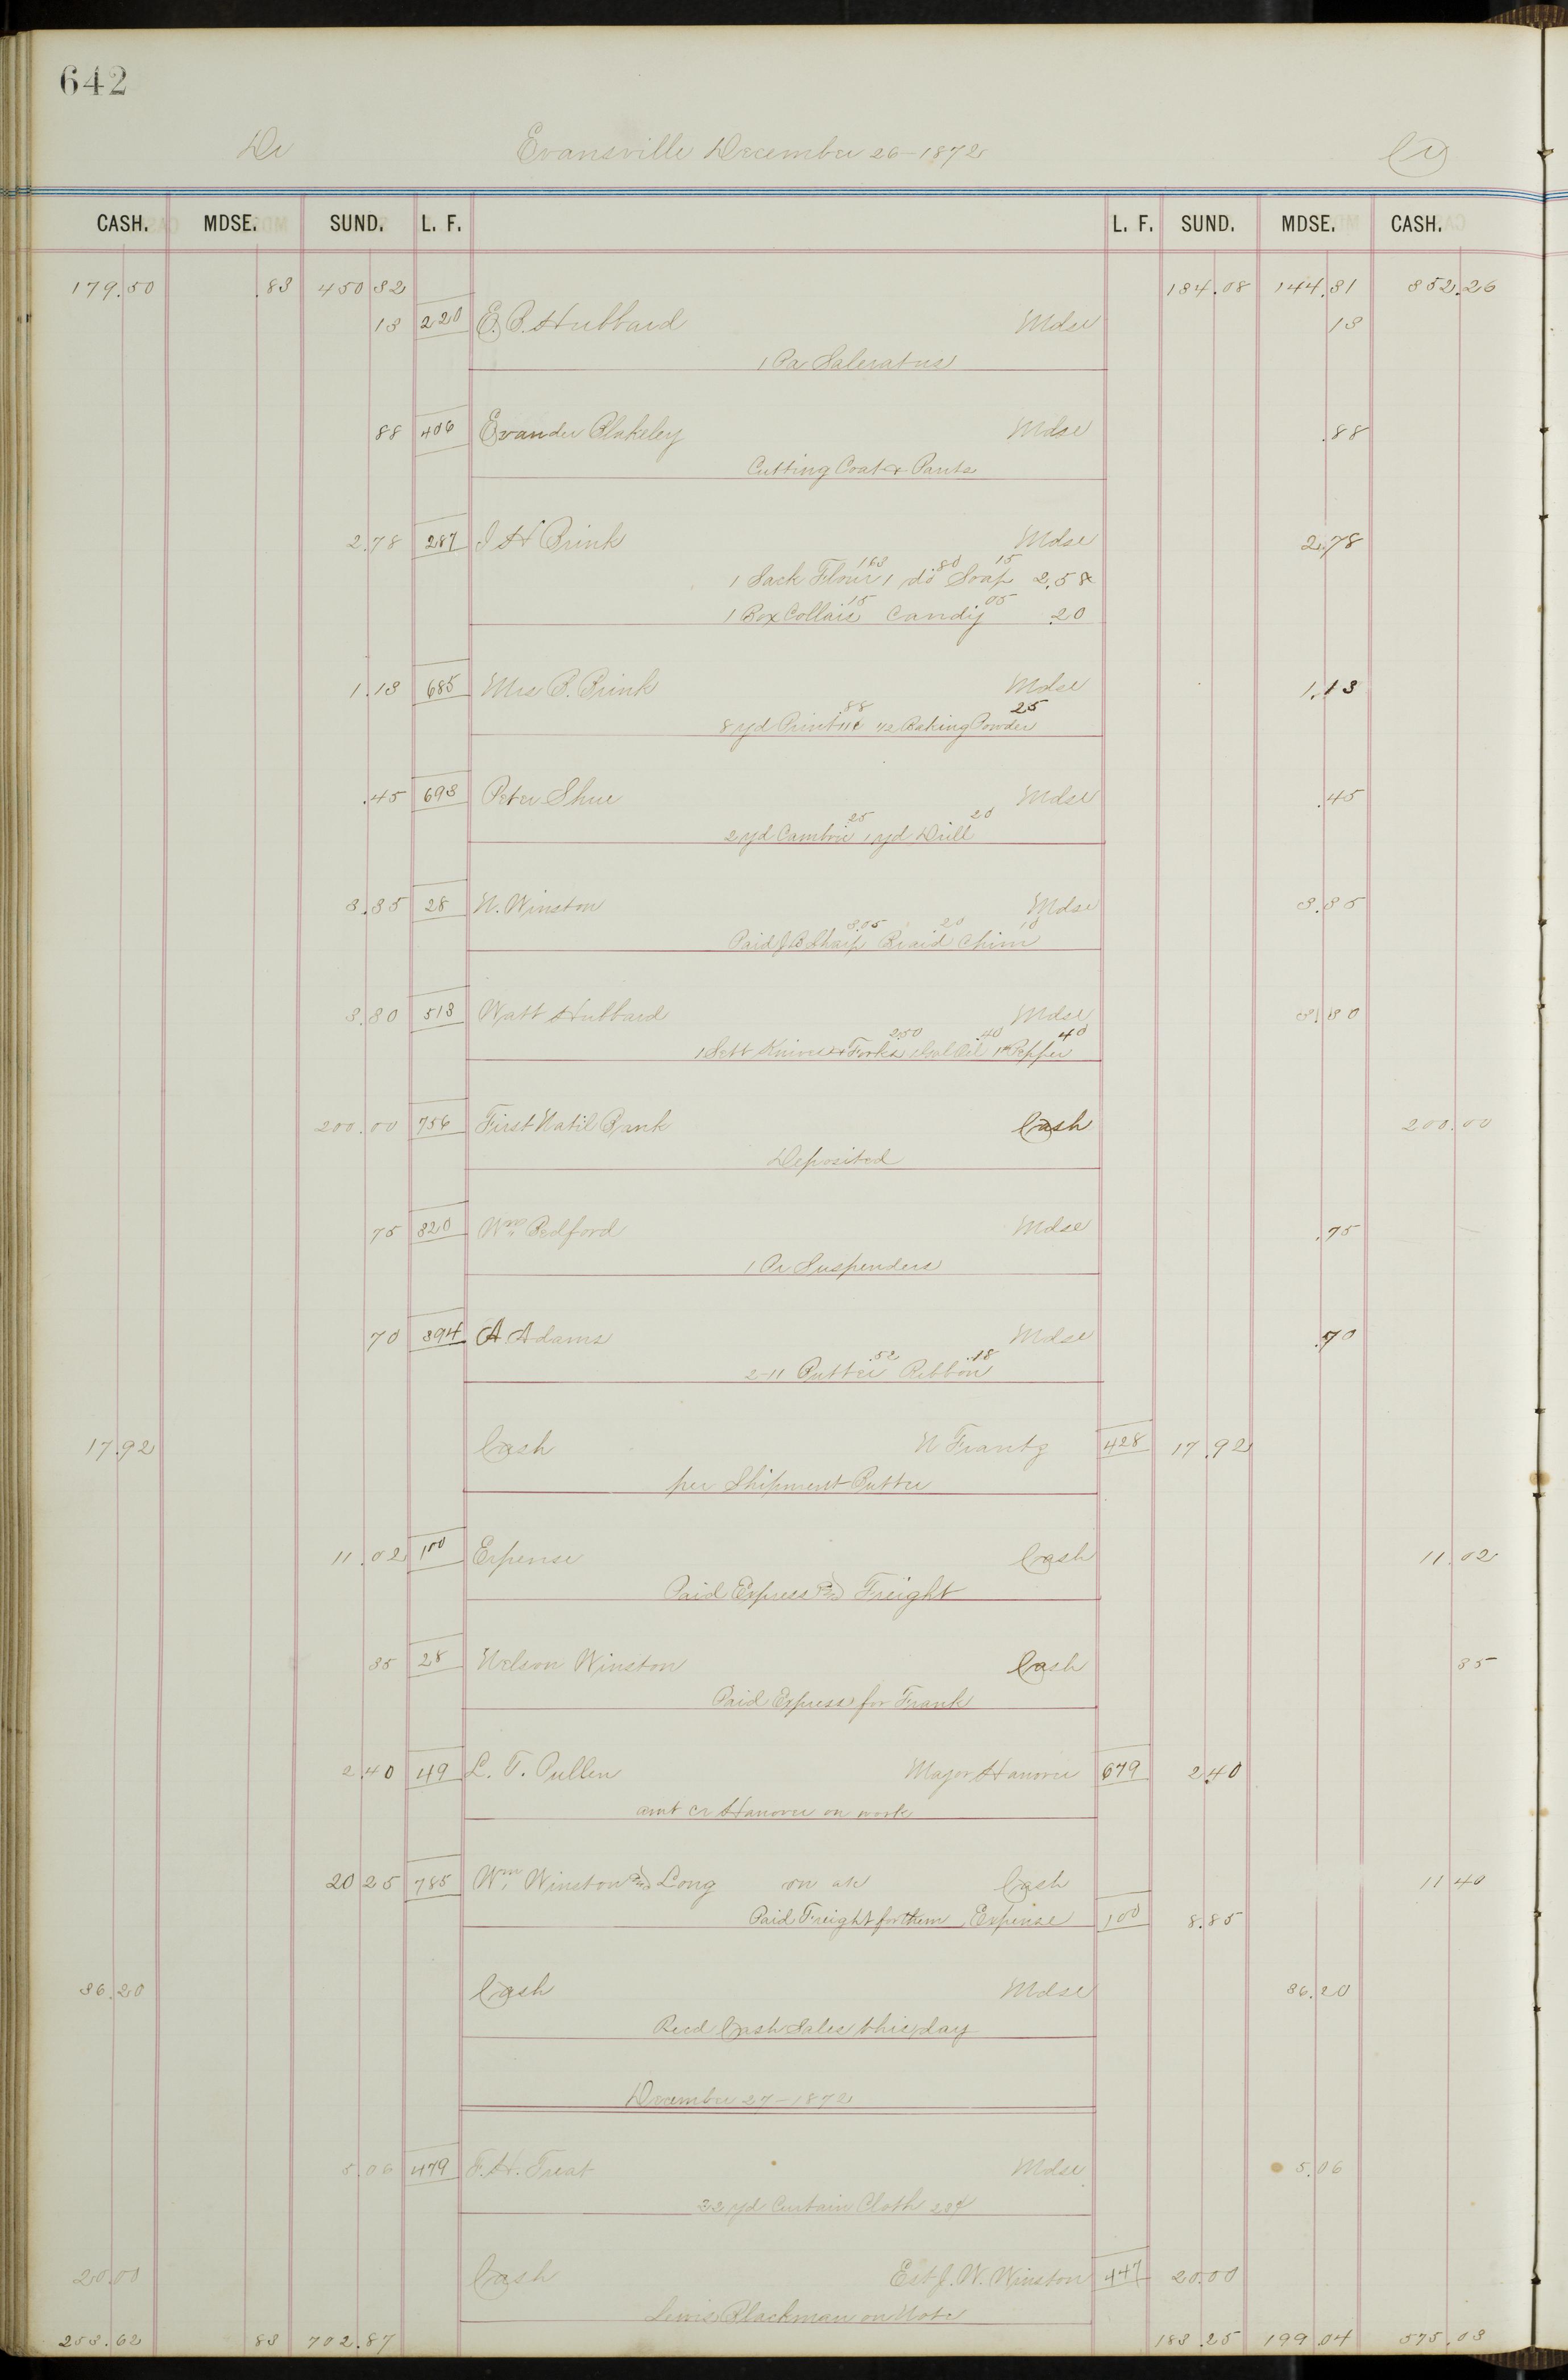 642
Dr Evansville December 26-1872 Cr
CASH. MDSE. SUND. L. F. L. F. SUND. MDSE. CASH.
179.50 .83 450 32 134.08 144.31 352.26
13 220 E. P. Hubbard Mdse 13
1 Pa Saleratus
88 406 Evander Blakeley Mdse .88
Cutting Coat & Pants
2.78 287 J H Brink Mdse 2.78
163 80 15
1 Sack Flour 1 do Soap 2.58
15 05
1 Box Collars Candy .20
1.13 685 Mrs P. Brink Mdse 1.13
88 25
8 yd Print 11c 1/2 Baking Powder
.45 693 Peter Shue Mdse .45
25 20
2 yd Cambric 1 yd Drill
3.35 28 N. Winston Mdse 3.35
3.05 20 10
Paid J B Sharp Braid Chim
3.30 513 Watt Hubbard Mdse 3.30
2.50 .40 40
1 Sett Knives & Forks 1 Gal Oil 1# Pepper
200.00 756 First Natil Bank Cash 200.00
Deposited
75 320 Wm Bedford Mdse .75
1 Pr Suspenders
70 394 A. Adams Mdse .70
.52 .18
2-11 Butter Ribbon
17.92 Cash N Frantz 428 17.92
per Shipment Butter
11.02 100 Expense Cash 11.02
Paid Express and Freight
35 28 Nelson Winston Cash 35
Paid Express for Frank
2.40 49 L. T. Pullen Major Hanover 679 2.40
amt cr Hanover on work
20 25 785 Wm Winston and Long on a/c Cash 11 40
Paid Freight for them Expense 100 8.85
36.20 Cash Mdse 36.20
Recd Cash Sales this day
December 27-1872
5.06 479 F. H. Treat Mdse 5.06
22 yd Curtain Cloth 23¢
20.00 Cash Est J. W. Winston 447 20.00
Lewis Blackman on Note
253.62 83 702.87 183.25 199.04 575.03